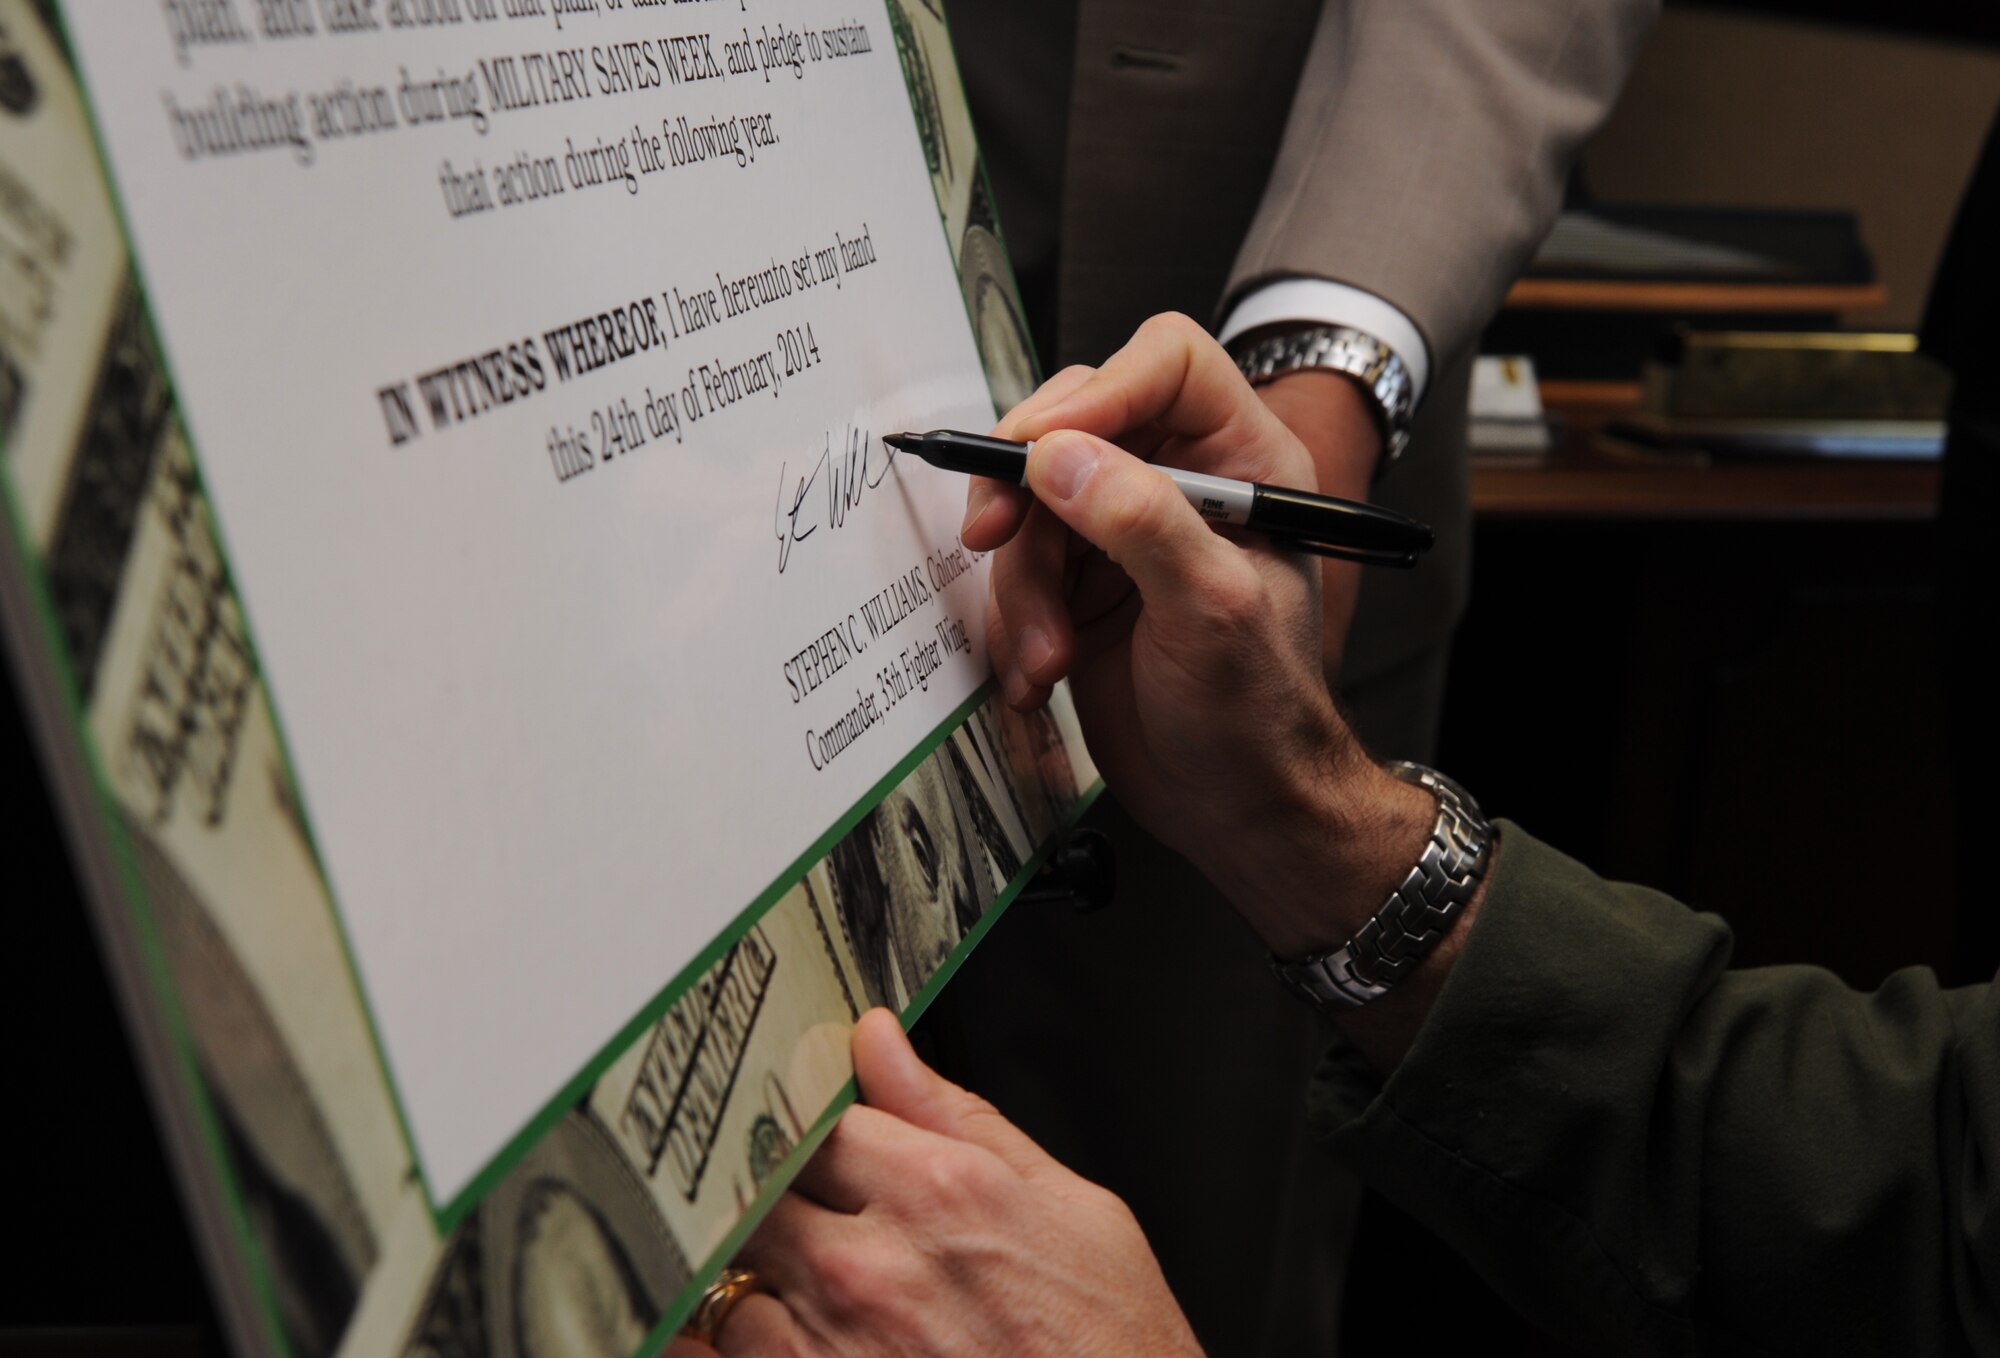 plan, and take action on that plan, or take
building action during MILITARY SAVES WEEK, and pledge to sustain
that action during the following year.
IN WITNESS WHEREOF, I have hereunto set my hand
this 24th day of February, 2014
STEPHEN C. WILLIAMS, Colonel,
Commander, 35th Fighter Wing
FINE
POINT